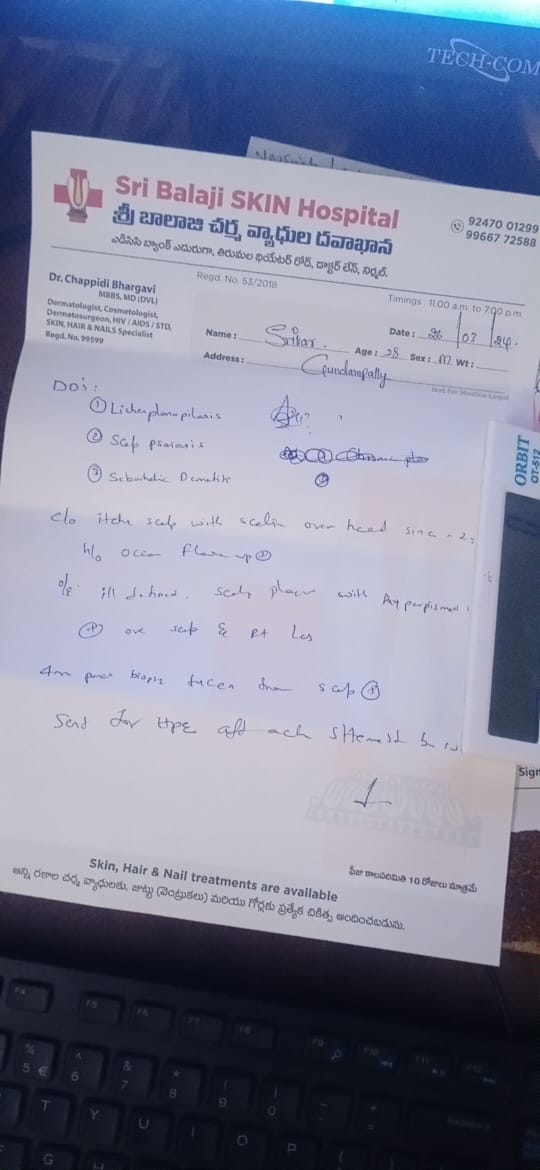 TECH-COM
Sri Balaji SKIN Hospital
శ్రీ బాలాజి చర్మ వ్యాధుల దవాఖాన
ఎడిసిసి బ్యాంక్ ఎదురుగా, తిరుమల థియేటర్ రోడ్, డాక్టర్ లేన్, నిర్మల్.
92470 01299
99667 72588
Regd. No. 53/2018
Timings : 11.00 a.m. to 7.00 p.m.
Dr. Chappidi Bhargavi
MBBS, MD (DVL)
Dermatologist, Cosmetologist,
Dermatosurgeon, HIV / AIDS / STD,
SKIN, HAIR & NAILS Specialist
Regd. No. 99599
Name : Srikar. Date : 26/03/24.
Age : 28 Sex : M Wt :
Address : Gundampally
Not for Medico Legal
DO's :
① Lichen planopilaris
② Scap psoriasis
③ Seborrheic Dermatitis
ORBIT
OT-512
c/o itchy scalp with scaling over head since
h/o occan flare up ⊕
o/e ill defined. scaly plaques with
⊕ over scalp & Rt Leg
4mm punch biopsy taken from scalp
Send for HPE
Sign
Skin, Hair & Nail treatments are available
ఫీజు కాలపరిమితి 10 రోజులు మాత్రమే
అన్ని రకాల చర్మ వ్యాధులకు, జుట్టు (వెంట్రుకలు) మరియు గోర్లకు ప్రత్యేక చికిత్స అందించబడును.
F4 F5 F6 F7 F8 F9 F10 F11 F12
% 5 € ^ 6 & 7 * 8 ( 9 ) 0 - + =
T Y U I O P
G H